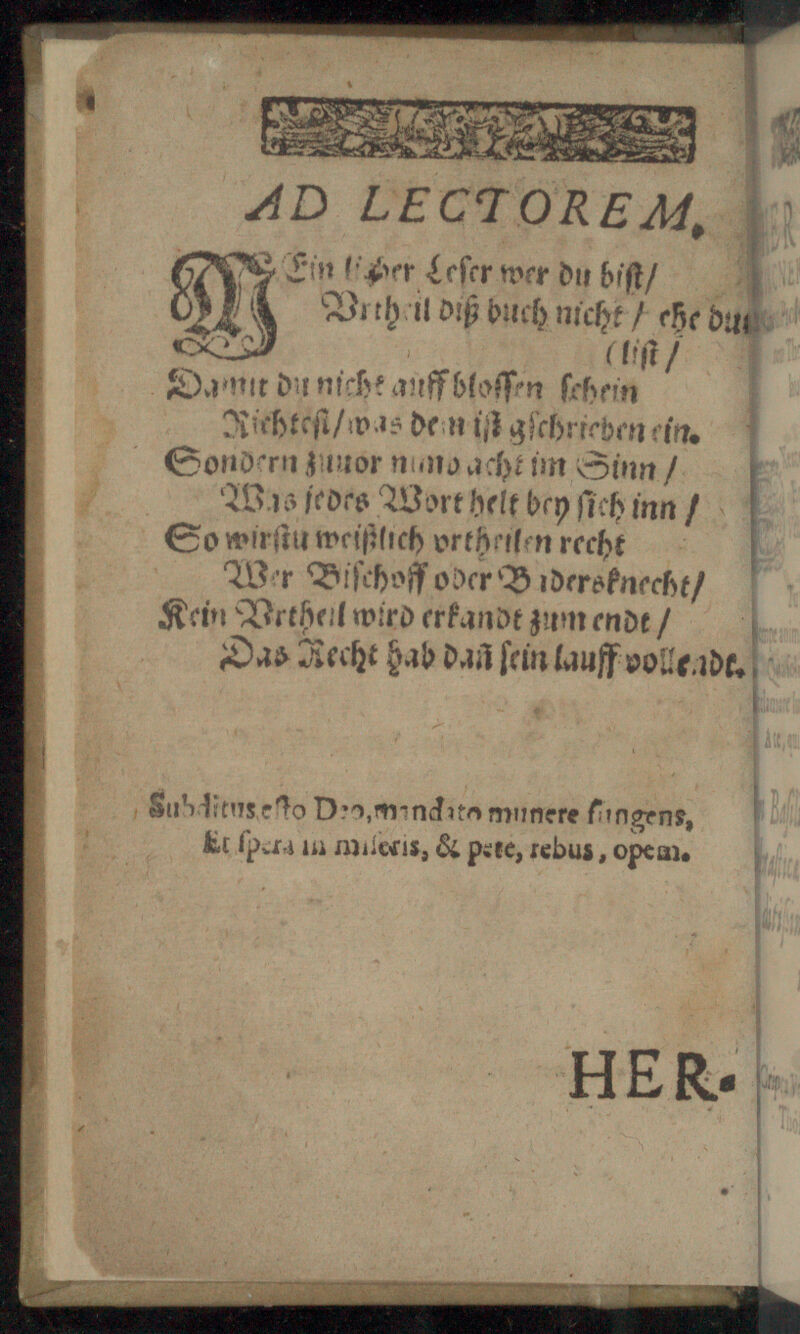 AD LECTOREM,
MEin lieber Leſer wer du biſt/
Vrtheil diß buch nicht / ehe du
(liſt /
Damit du nicht auff bloſſen ſchein
Richteſt/was dem iſt gſchrieben ein.
Sondern zuuor nimb acht im Sinn /
Was jedes Wort helt bey ſich inn /
So wirſtu weißlich vrtheilen recht
Wer Biſchoff oder Bidersknecht/
Kein Vrtheil wird erkandt zum endt /
Das Recht hab dañ ſein lauff vollendt.
Subditus eſto Deo, mandato munere fungens,
Et ſpera in miſeris, & pete, rebus, opem.
HER-